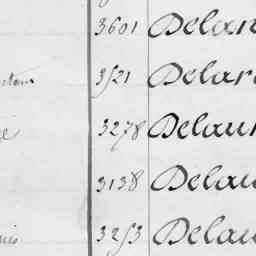 3601 Delan
3521 Delar
3278 Delaun
3138 Delau
3253 Delau